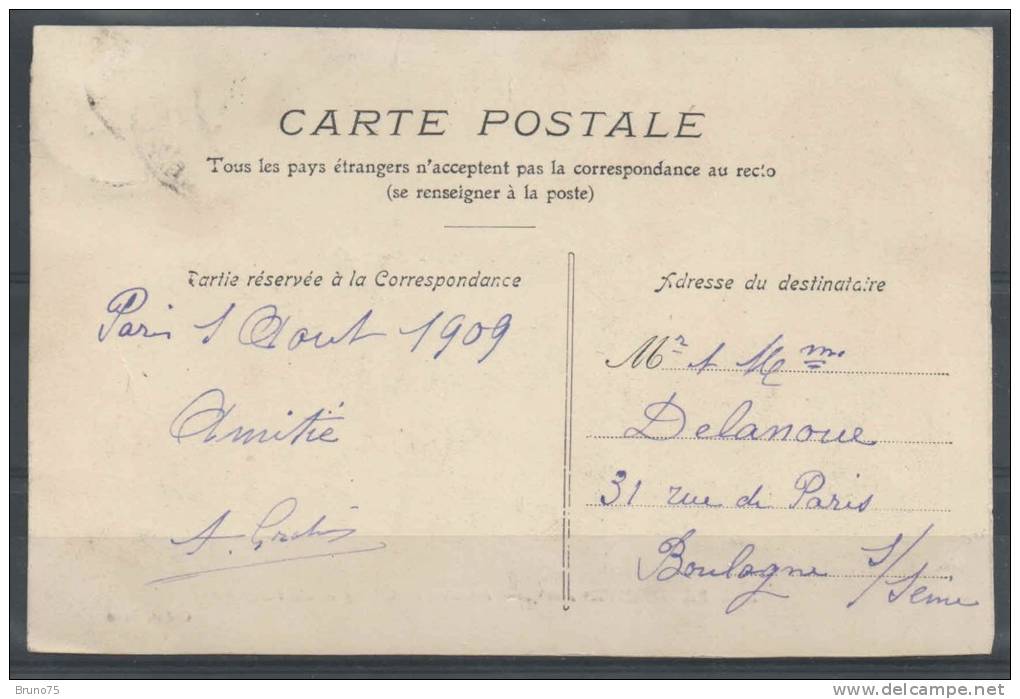 CARTE POSTALE
Tous les pays étrangers n'acceptent pas la correspondance au recto
(se renseigner à la poste)
Partie réservée à la Correspondance
Paris 1 Aout 1909
Amitié
A.
Adresse du destinataire
Mr & Mme
Delanoue
31 rue de Paris
Boulogne s/
Seine
Bruno75
www.delcampe.net